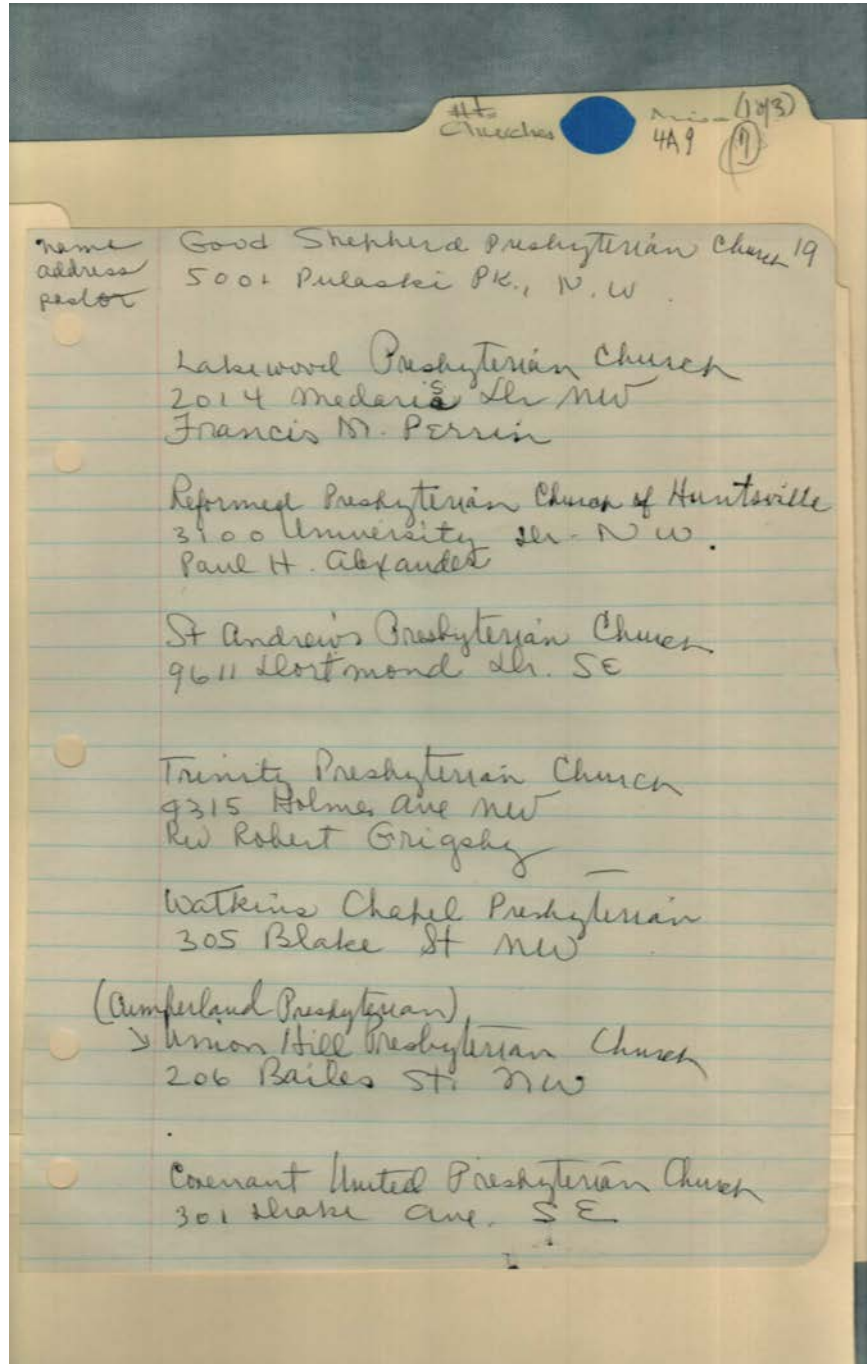 Churches
(1 of 3)
4A9
name
address
pastor
Good Shepherd Presbyterian Church 19
5001 Pulaski PK., N.W.
Lakewood Presbyterian Church
2014 Medaris Dr NW
Francis M. Perrin
Reformed Presbyterian Church of Huntsville
3100 University Dr. NW.
Paul H. Alexander
St Andrews Presbyterian Church
9611 Dortmond Dr. SE
Trinity Presbyterian Church
Holmes Ave NW
Rev Robert Grigsby
Watkins Chapel Presbyterian
305 Blake St NW
(Cumberland Presbyterian)
Union Hill Presbyterian Church
206 Bailes St. NW
Covenant United Presbyterian Church
301 Drake Ave. SE